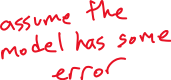 assume the
model has some
error